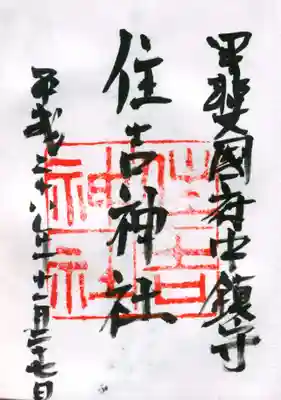 甲斐国府中鎮守
住吉神社
平成二十八年十一月二十七日
住吉神社